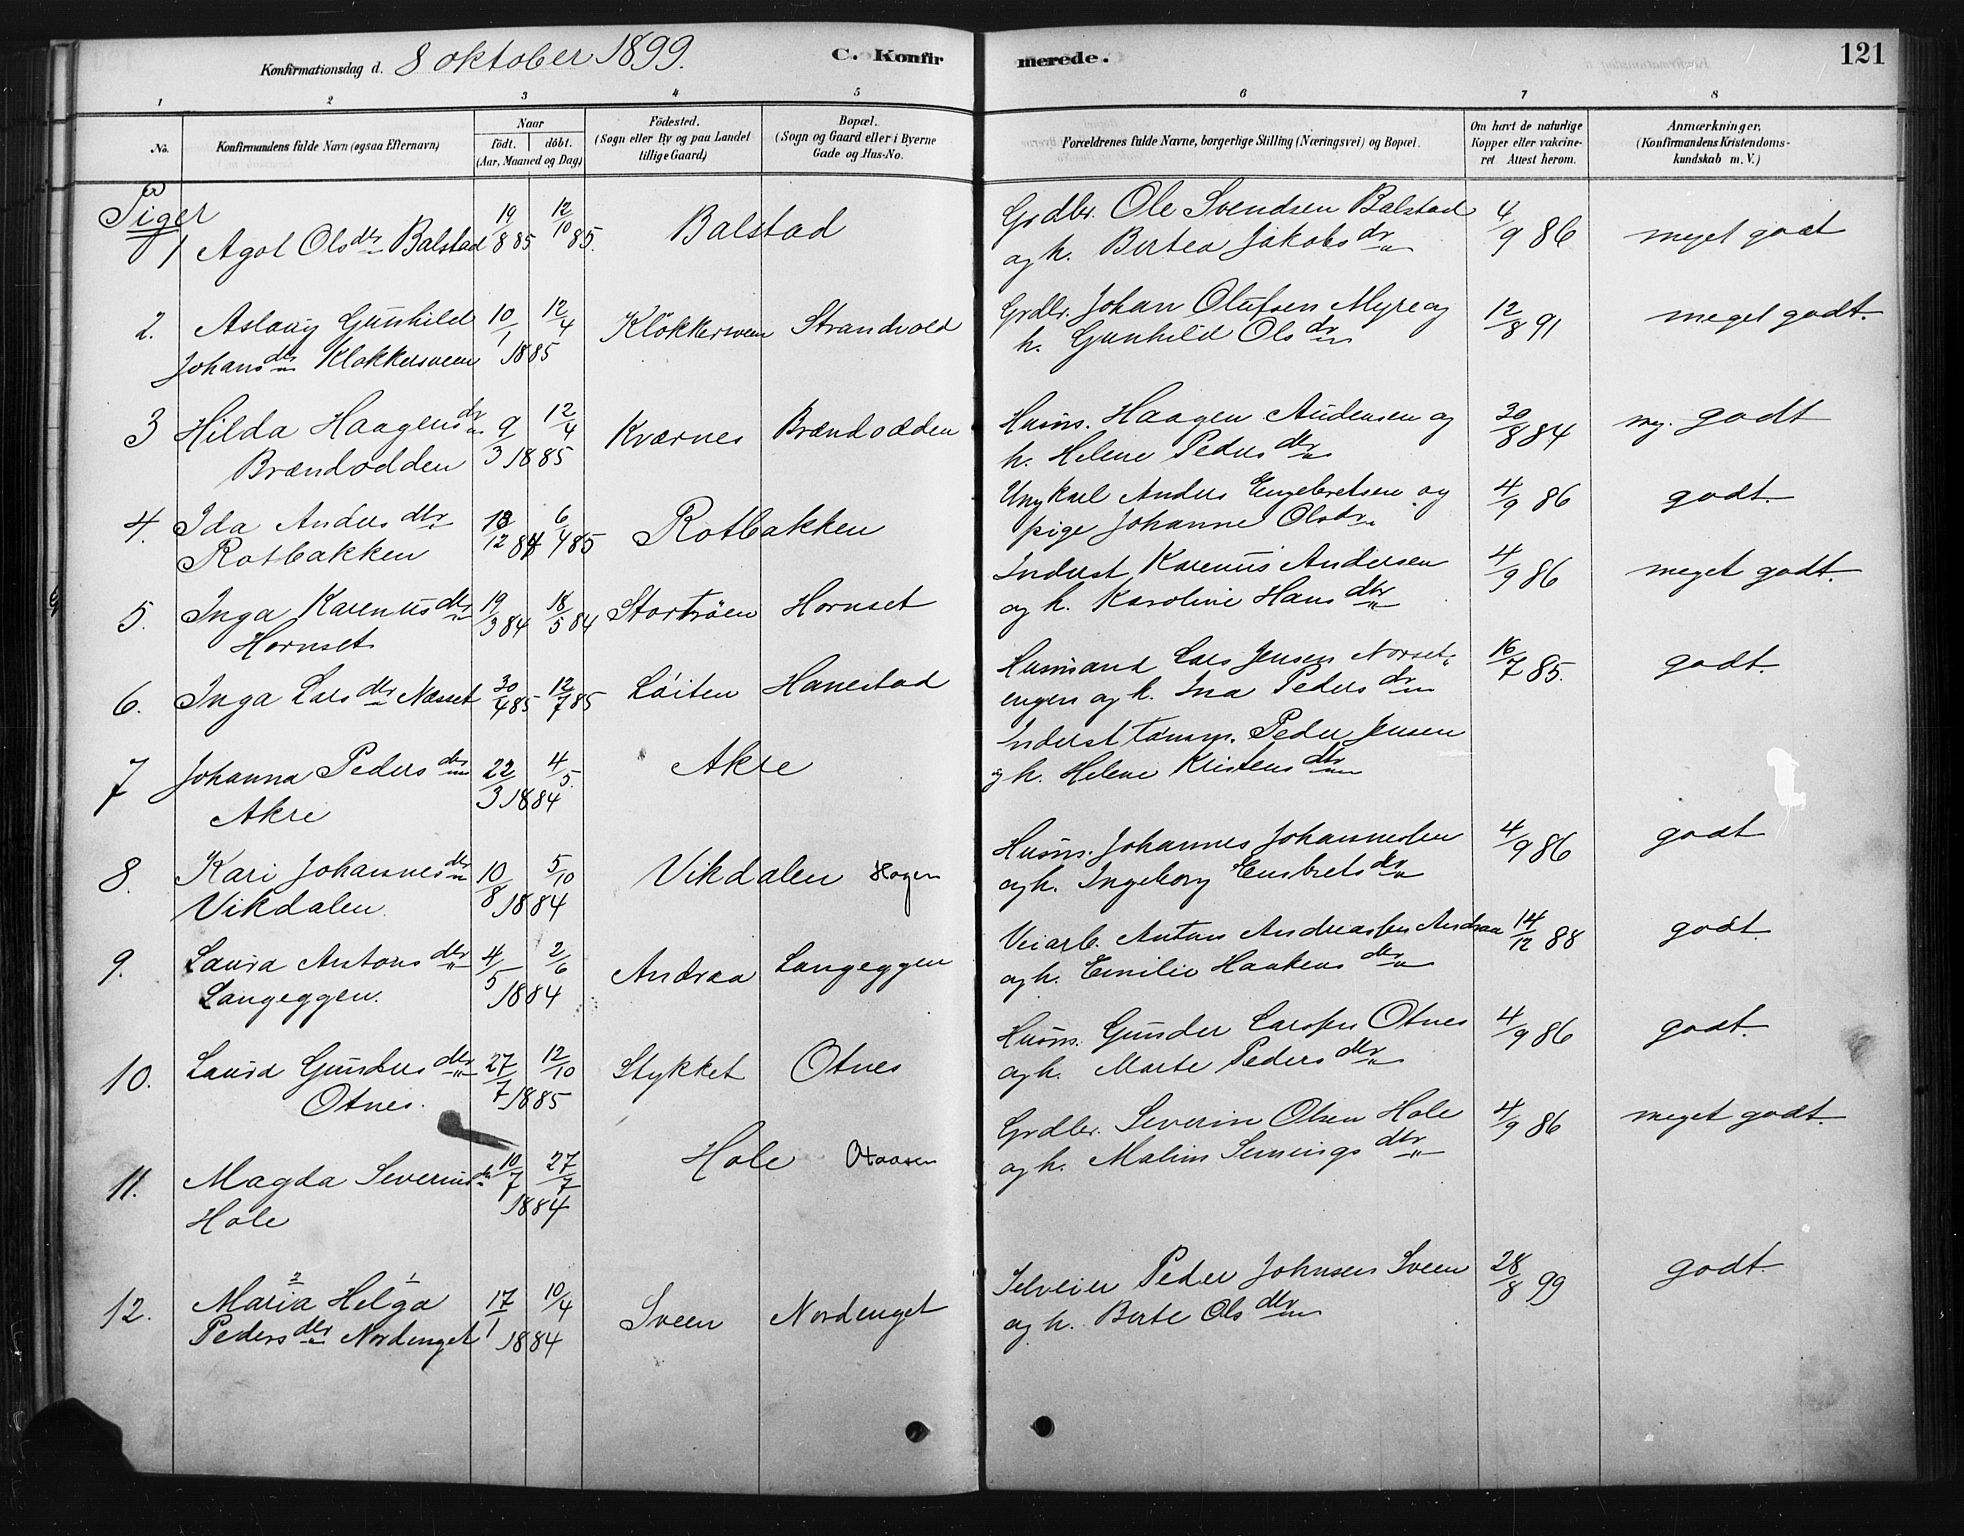 Konfirmationsdag d. 8 oktober 1899.
C. Konfirmerede.
121
1 2 3 4 5 6 7 8
No.
Konfirmandens fulde Navn (ogsaa Efternavn)
Naar
födt. döbt.
(Aar, Maaned og Dag)
Födested.
(Sogn eller By og paa Landet
tillige Gaard)
Bopæl.
(Sogn og Gaard eller i Byerne
Gade og Hus-No.
Forældrenes fulde Navne, borgerlige Stilling (Næringsvei) og Bopæl.
Om havt de naturlige
Kopper eller vakcine-
ret. Attest herom.
Anmærkninger.
(Konfirmandens Kristendoms-
kundskab m. V.)
Piger
1 Agot Olsdtr Balstad 19/8 85 12/10 85. Balstad Grdbr. Ole Svendsen Balstad 4/9 86 meget godt
og h. Bertea Jakobsdr
2. Aslaug Gunhild 10/1 12/4 Klökkersveen Strandvold Grdbr. Johan Olufsen Myre og 12/8 91 meget godt.
Johansdtr Klokkersveen 1885 h. Gunhild Olsdr
3 Hilda Haagensdr 9/3 12/4 Kværnes Brændodden Husm. Haagen Audensen og 30/8 84 mg. godt
Brændodden 1885 h. Helene Pedersdtr
4. Ida Andersdtr 13/12 84 6/4 85 Rotbakken Ungkarl Anders Engebretsen og 4/9 86 godt.
Rotbakken pige Johanne Olsdr
5. Inga Karenusdtr 19/3 84 18/5 84 Stortröen Hornset Inderst Karenus Andersen 4/9 86 meget godt.
Hornset og h. Karoline Hansdtr
6. Inga Larsdtr Næsset 30/4 85 12/7 85 Löiten Hanestad Husmand Lars Jensen Norset- 16/7 85. godt.
engen og h. Ina Pedersdr
7 Johanna Pedersdtr 22/3 4/5. Akre Inderst tömm. Peder Jensen
Akre 1884 og h. Helene Kristensdtr
8. Kari Johannesdtr 10/8 5/10 Vikdalen Hagen Husm. Johannes Johannesen 4/9 86 godt
Vikdalen. 1884 og h. Ingeborg Embretsdtr
9. Laura Antonsdtr 4/5 2/6 Andraa Langeggen Veiarb. Anton Andreasen Andraa 14/12 88 godt.
Langeggen. 1884 og h. Emilie Haakensdtr
10. Laura Gundersdtr 27/7 12/10 Stykket Otnes Husm. Gunder Larsen Otnes 4/9 86 godt.
Otnes. 1885 og h. Marte Pedersdtr
11. Magda Severinsdtr 10/7 27/7 Hole Otaasen Grdbr. Severin Olsen Hole 4/9 86 meget godt.
Hole 1884 og h. Malin Semingsdtr
12. Maria 2 Helga 1 17/1 10/4 Sveen Nordenget Selveier Peder Johnsen Sveen 28/8 99 godt.
Pedersdtr Nordenget 1884 og h. Berte Olsdtr